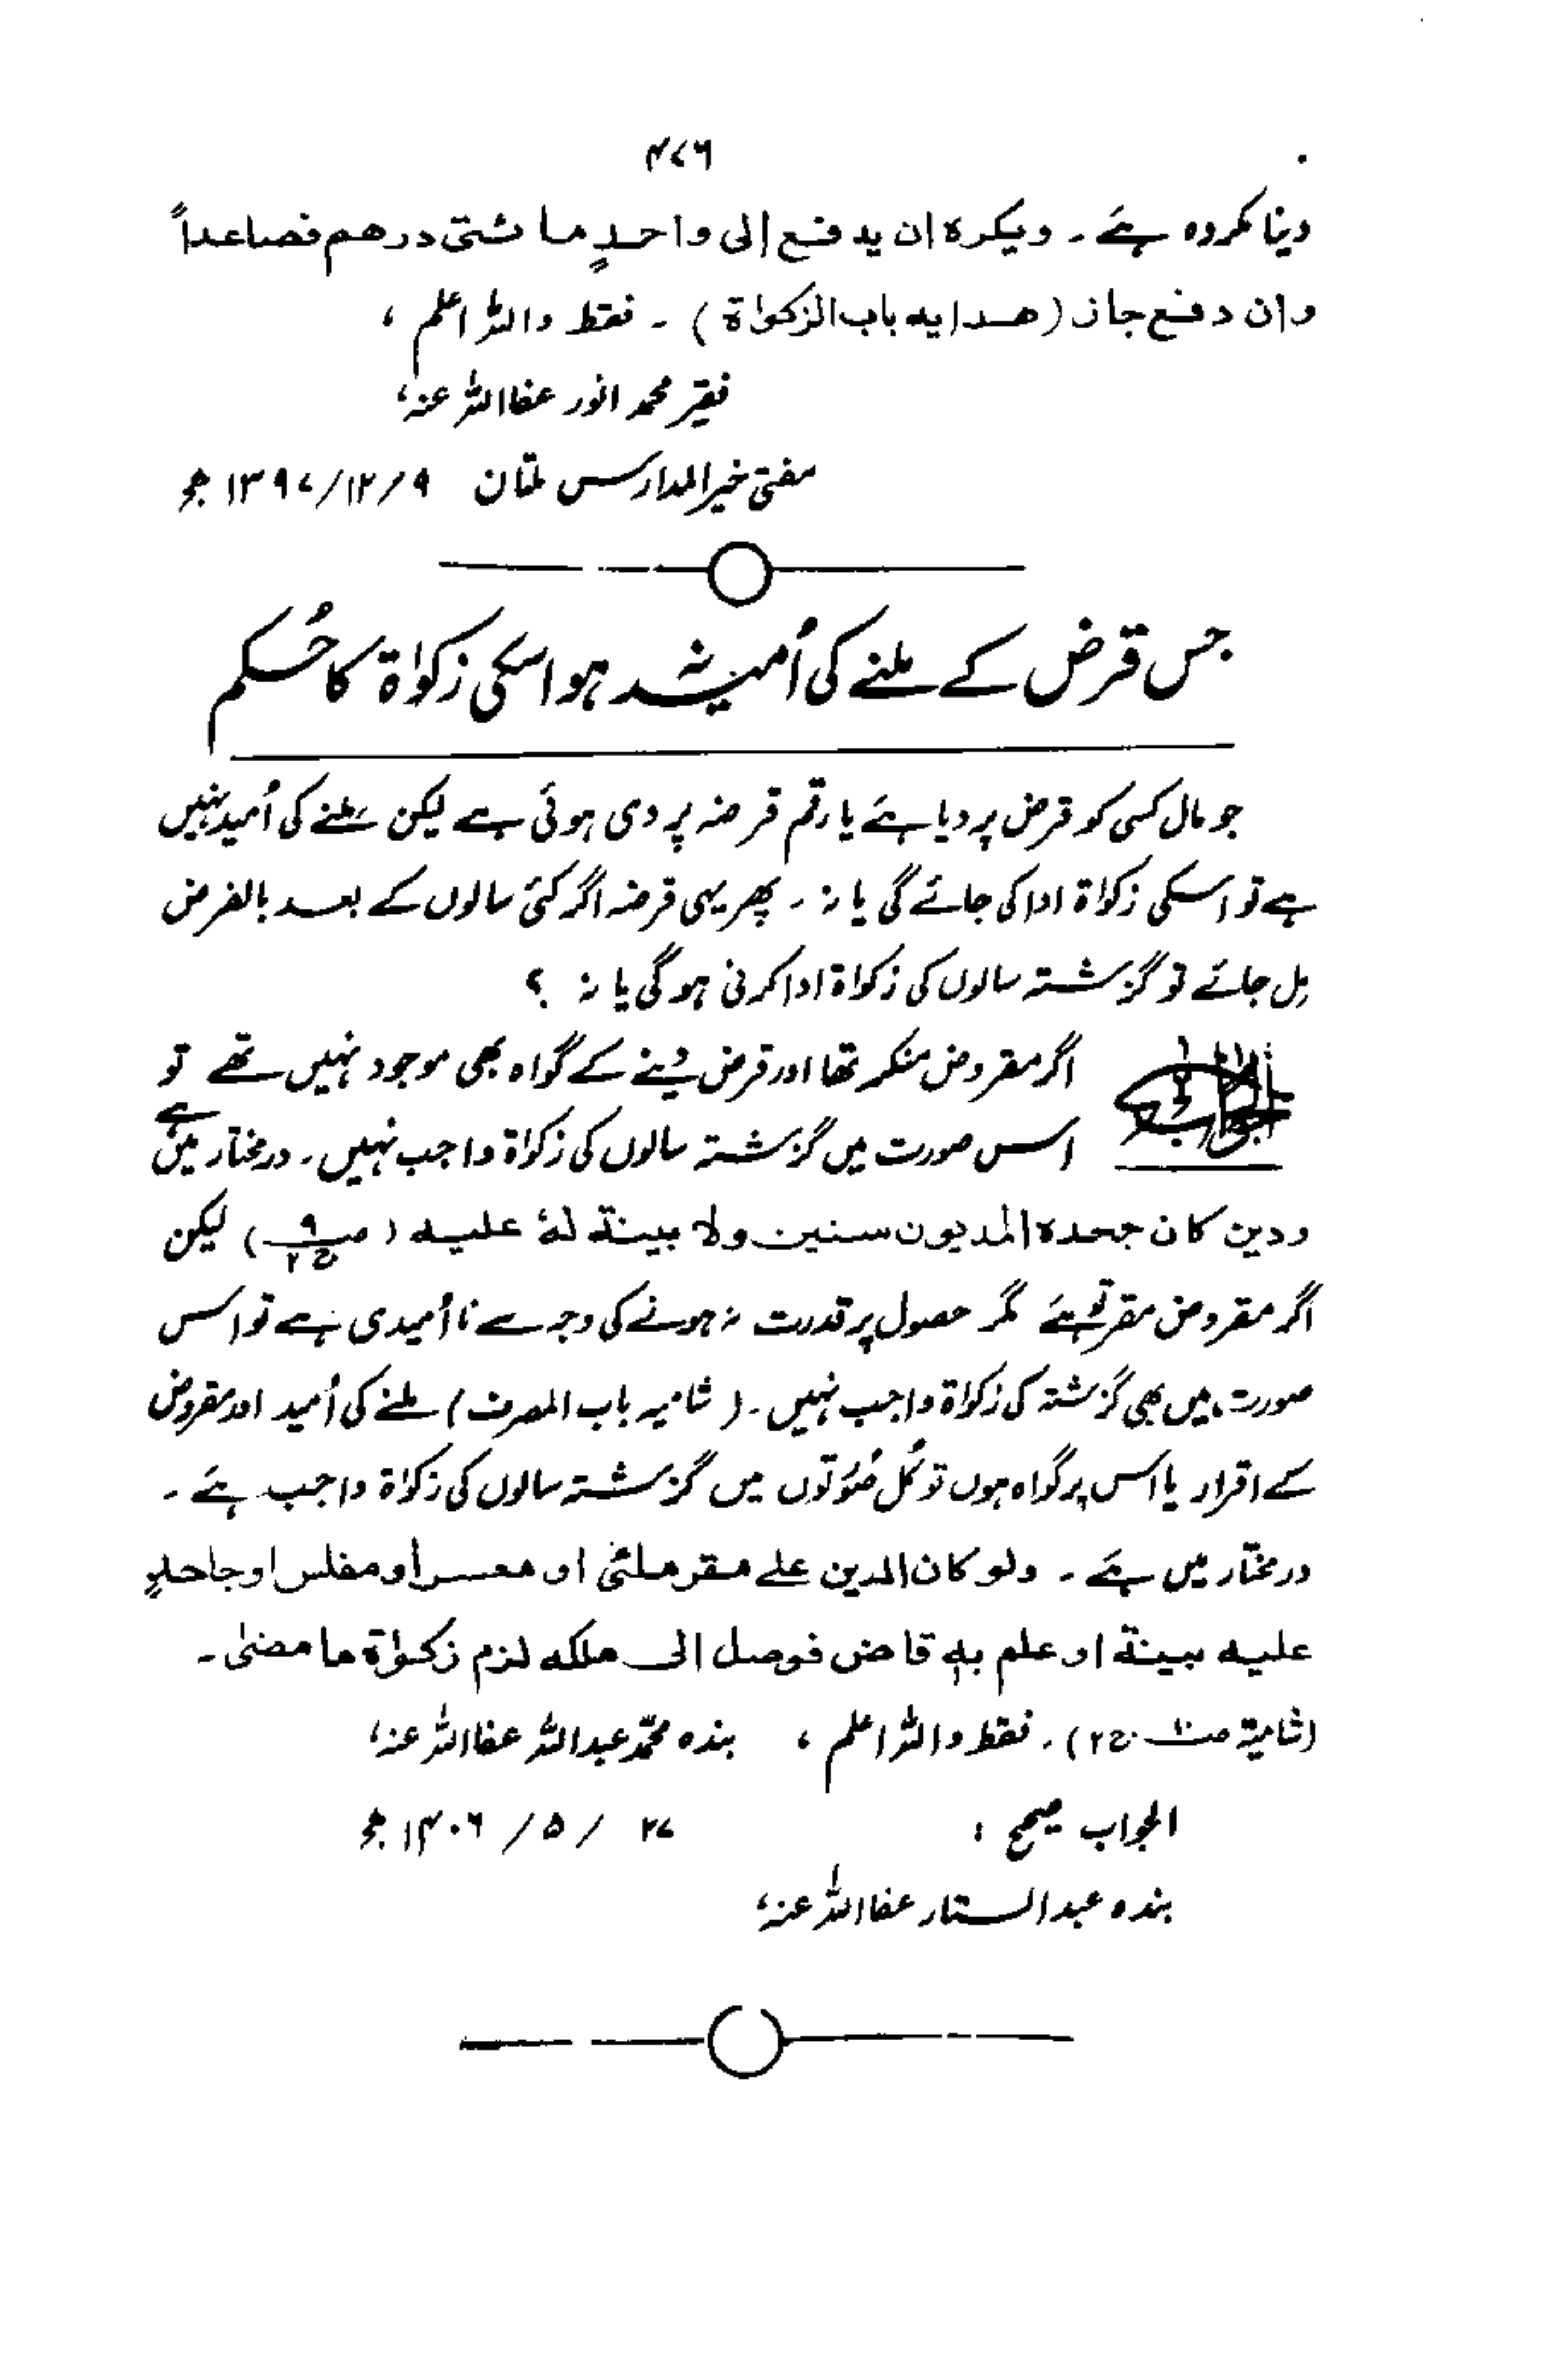 ۴۷۶
دینا مکروہ ہے۔ ویکرہ ان یدفع إلی واحدٍ مائتی درهم فصاعداً
وان دفع جاز (هدایه باب الزکوٰة) ۔ فقط واللہ اعلم ،
فقیر محمد انور عفا اللہ عنہ،
مفتی خیر المدارس ملتان ۹/۱۲/۱۳۹۷ھ
جس قرض کے ملنے کی اُمید نہ ہو اسکی زکوٰۃ کا حُکم
جو مال کسی کو قرض پر دیا ہے یا رقم قرضہ پر دی ہوئی ہے لیکن ملنے کی اُمید نہیں
ہے تو اسکی زکوٰۃ ادا کی جائے گی یا نہ ۔ پھر یہی قرضہ اگر کئی سالوں کے بعد بالفرض
مِل جائے تو گزشتہ سالوں کی زکوٰۃ ادا کرنی ہو گی یا نہ ؟
الجواب اگر مقروض منکر تھا اور قرض دینے کے گواہ بھی موجود نہیں تھے تو
اس صورت میں گزشتہ سالوں کی زکوٰۃ واجب نہیں۔ درمختار میں ہے
ودین کان جحدہ المدیون سنین ولا بینة لهٗ علیه (ص۹ ج۲) لیکن
اگر مقروض مقر تو ہے مگر حصول پر قدرت نہ ہونے کی وجہ سے نا اُمیدی ہے تو اس
صورت میں بھی گزشتہ کی زکوٰۃ واجب نہیں۔ (شامیہ باب المصرف) ملنے کی اُمید اور مقروض
کے اقرار یا اس پر گواہ ہوں تو کُل صُورتوں میں گزشتہ سالوں کی زکوٰۃ واجب ہے ۔
درمختار میں ہے ۔ ولو کان الدین علے مقر ملئی او معسر أو مفلس او جاحدٍ
علیه بینة او علم بهٖ قاض فوصل الی ملکه لزم زکوٰة ما مضیٰ ۔
(شامیة ص۱۰ ج۲) ۔ فقط واللہ اعلم ، بندہ محمّد عبداللہ عفا اللہ عنہ،
الجواب صحیح : ۲۷ / ۵ / ۱۴۰۶ھ
بندہ عبد الستار عفا اللہ عنہ،